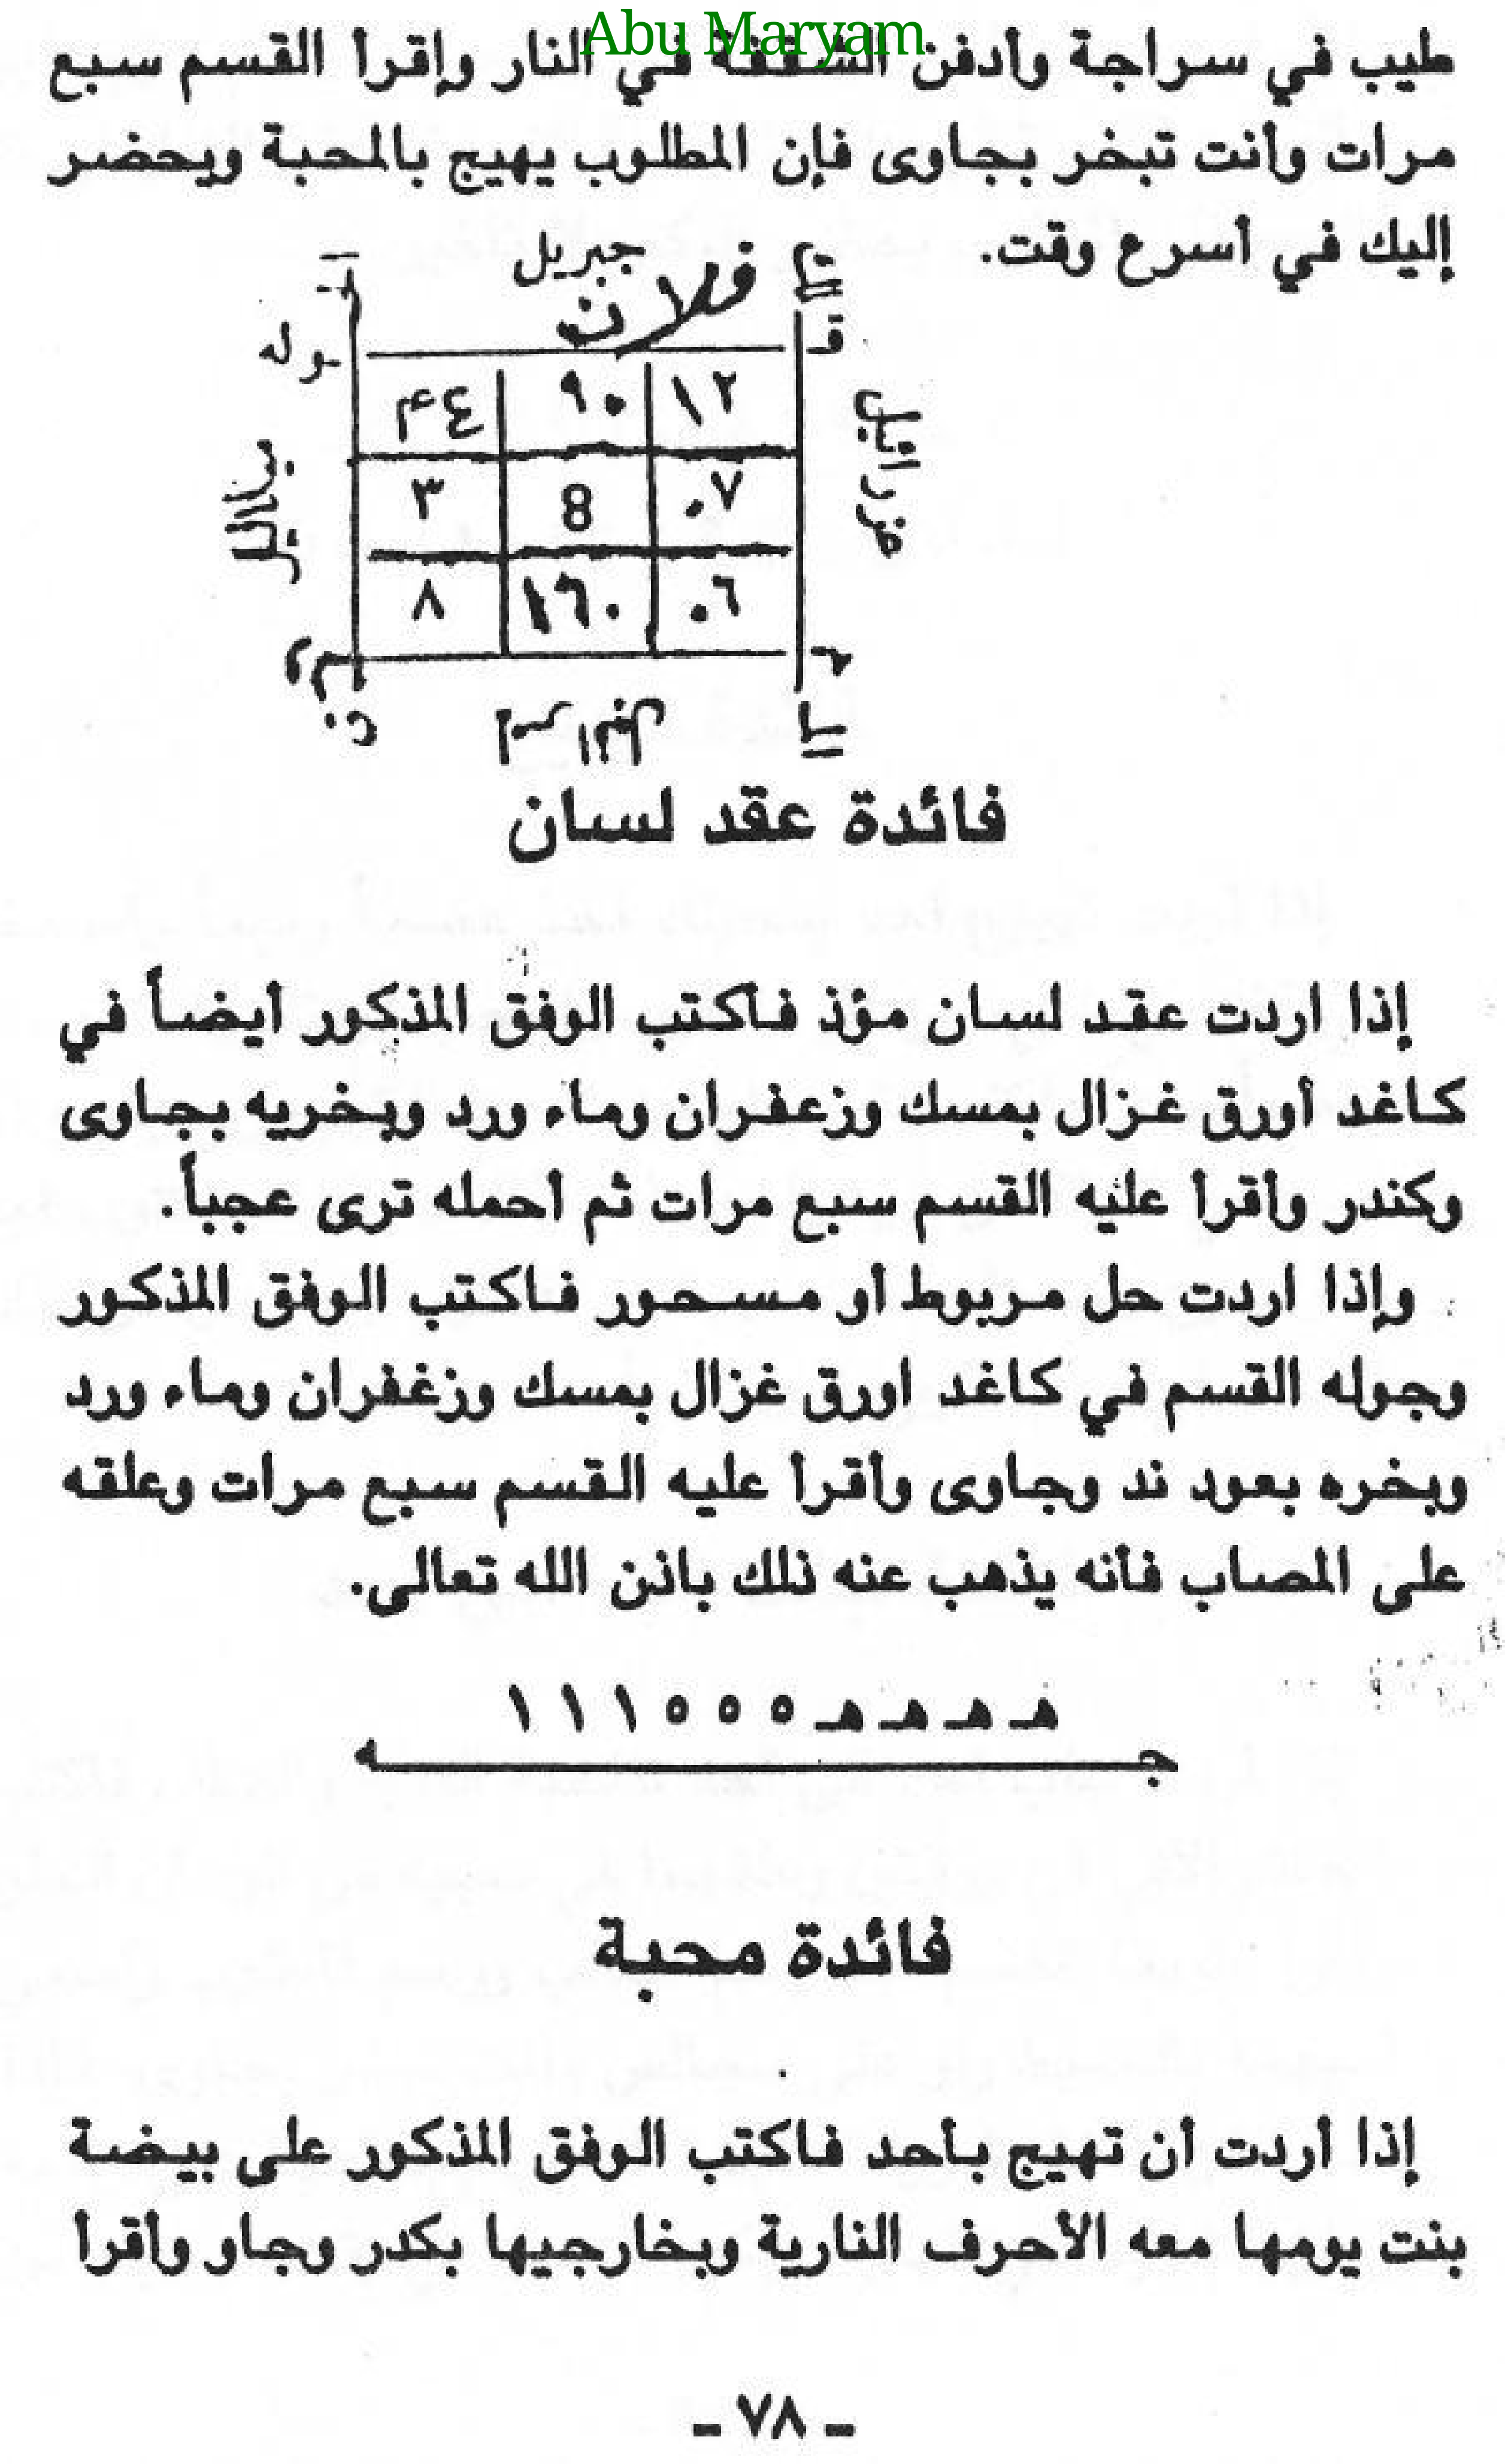 Abu Maryam
طيب في سراجة وأدفن الشقفة في النار وإقرأ القسم سبع
مرات وأنت تبخر بجاوى فإن المطلوب يهيج بالمحبة ويحضر
إليك في أسرع وقت.
جبريل
فلان
١٢ ٩٠ ٤٤
٠٧ 8 ٣
٠٦ ١٦٠ ٨
فائدة عقد لسان
إذا اردت عقد لسان مؤذ فأكتب الوفق المذكور أيضاً في
كاغد أورق غزال بمسك وزعفران وماء ورد وبخريه بجاوى
وكندر وأقرأ عليه القسم سبع مرات ثم أحمله ترى عجباً.
وإذا اردت حل مربوط أو مسحور فاكتب الوفق المذكور
وجوله القسم في كاغد اورق غزال بمسك وزغفران وماء ورد
وبخره بعود ند وجاوى وأقرأ عليه القسم سبع مرات وعلقه
على المصاب فأنه يذهب عنه ذلك باذن الله تعالى.
هـ هـ هـ هـ ٥ ٥ ٥ ١ ١ ١
فائدة محبة
إذا أردت أن تهيج بأحد فاكتب الوفق المذكور على بيضة
بنت يومها معه الأحرف النارية وبخارجيها بكدر وجاو وأقرأ
ـ ٧٨ ـ